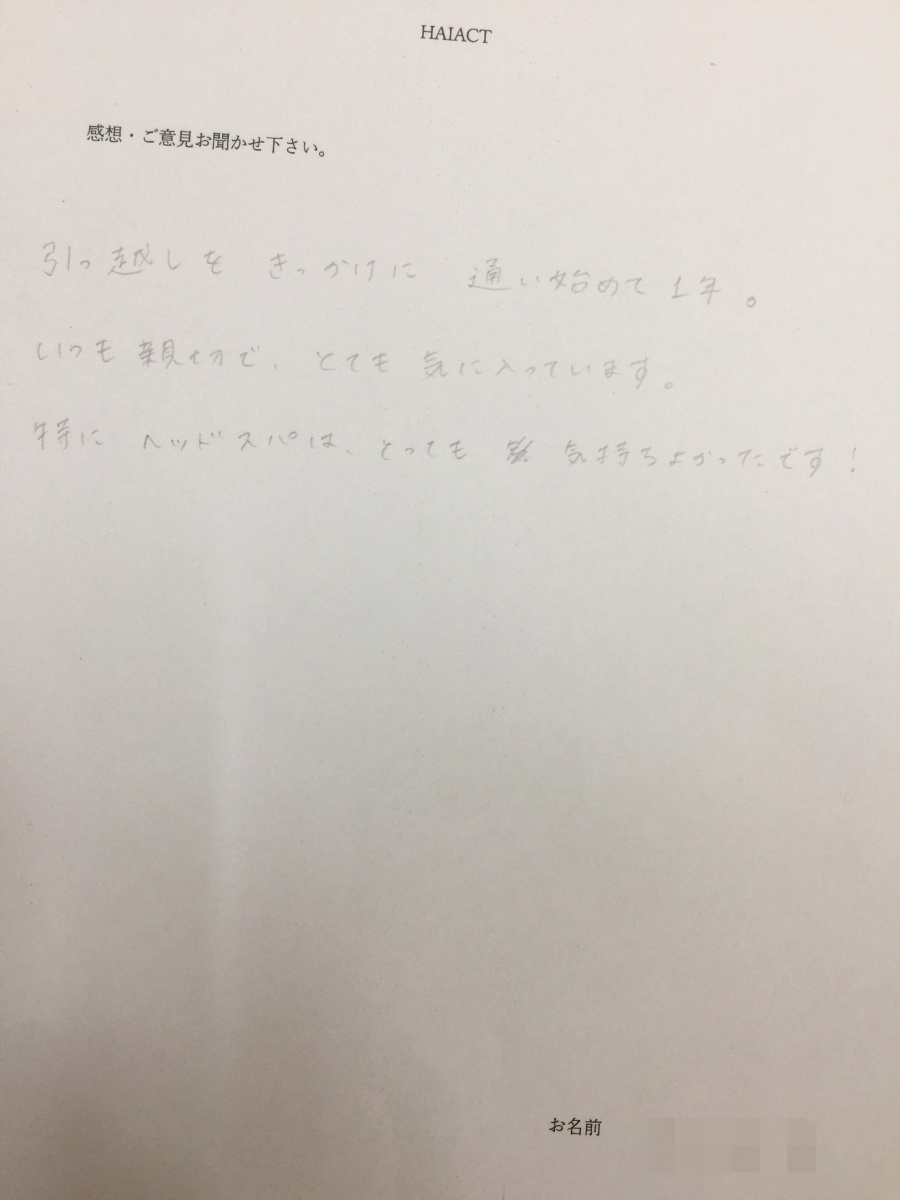 HAIACT
感想・ご意見お聞かせ下さい。
引っ越しを きっかけに 通い始めて 1年。
いつも 親切で、とても 気に入っています。
特に ヘッドスパは、とっても 気持ちよかったです!
お名前